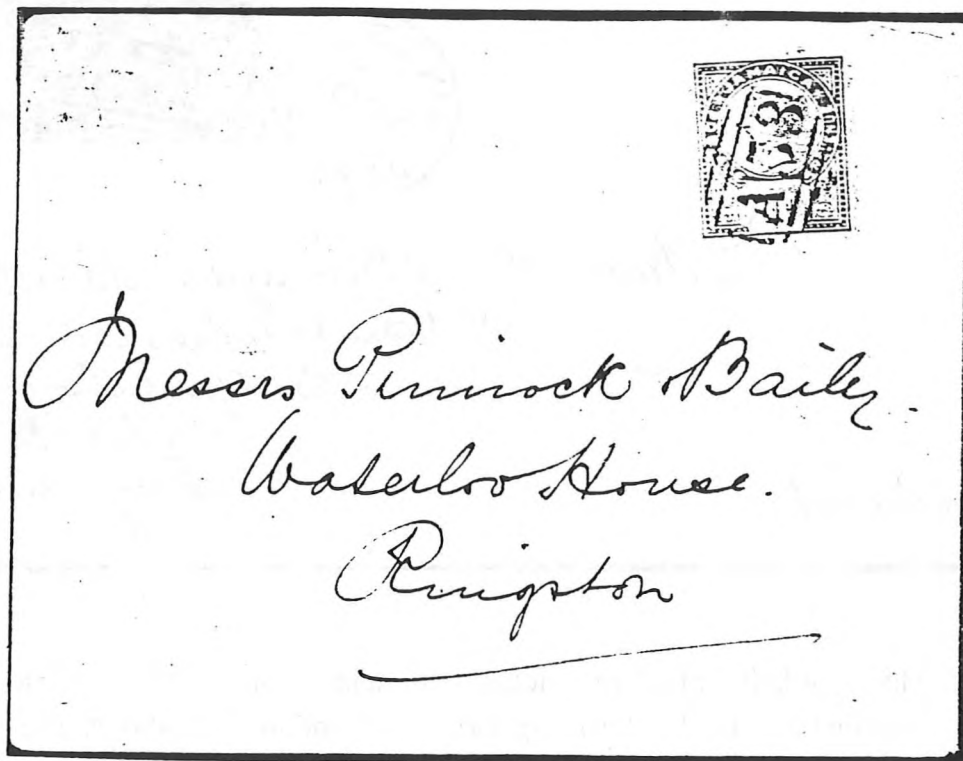 JAMAICA
A 58
Messrs Pinnock & Bailey.
Waterloo House.
Kingston